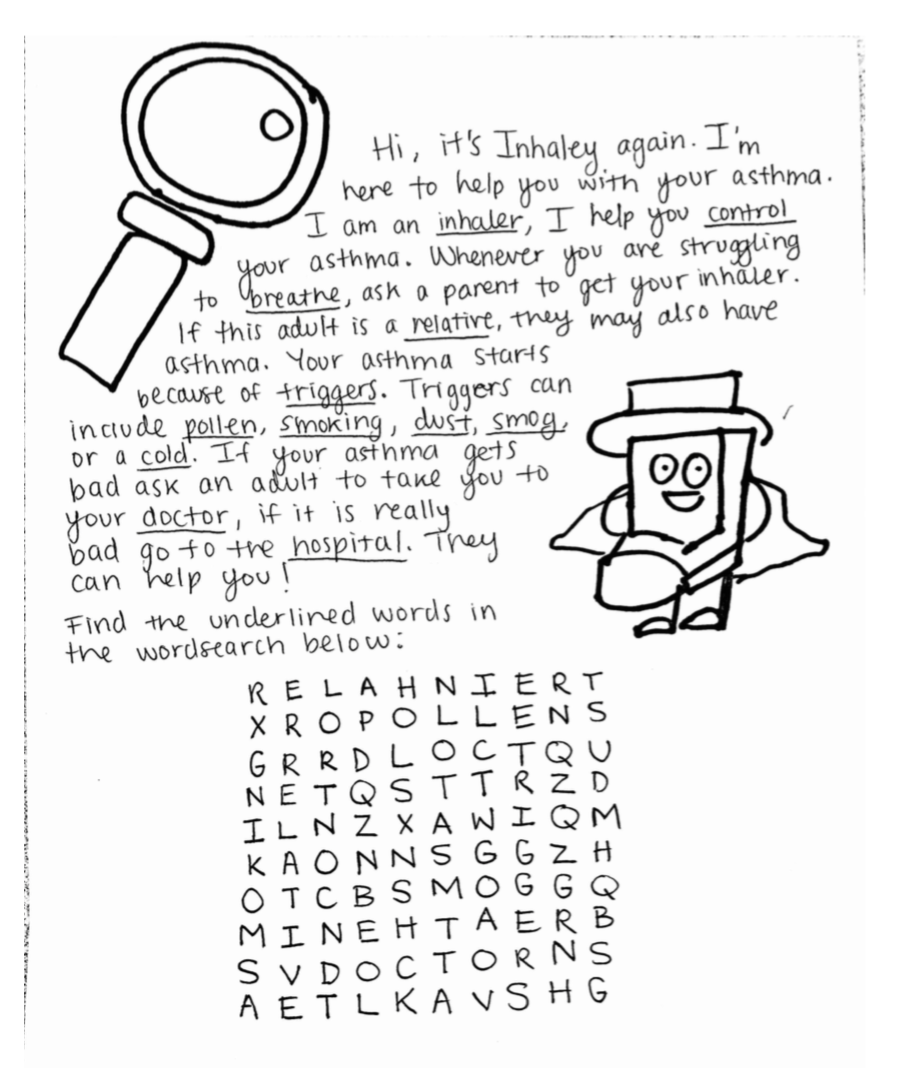 Hi, it's Inhaley again. I'm
here to help you with your asthma.
I am an inhaler, I help you control
your asthma. Whenever you are struggling
to breathe, ask a parent to get your inhaler.
If this adult is a relative, they may also have
asthma. Your asthma starts
because of triggers. Triggers can
include pollen, smoking, dust, smog,
or a cold. If your asthma gets
bad ask an adult to take you to
your doctor, if it is really
bad go to the hospital. They
can help you!
Find the underlined words in
the wordsearch below:
R E L A H N I E R T
X R O P O L L E N S
G R R D L O C T Q U
N E T Q S T T R Z D
I L N Z X A W I Q M
K A O N N S G G Z H
O T C B S M O G G Q
M I N E H T A E R B
S V D O C T O R N S
A E T L K A V S H G